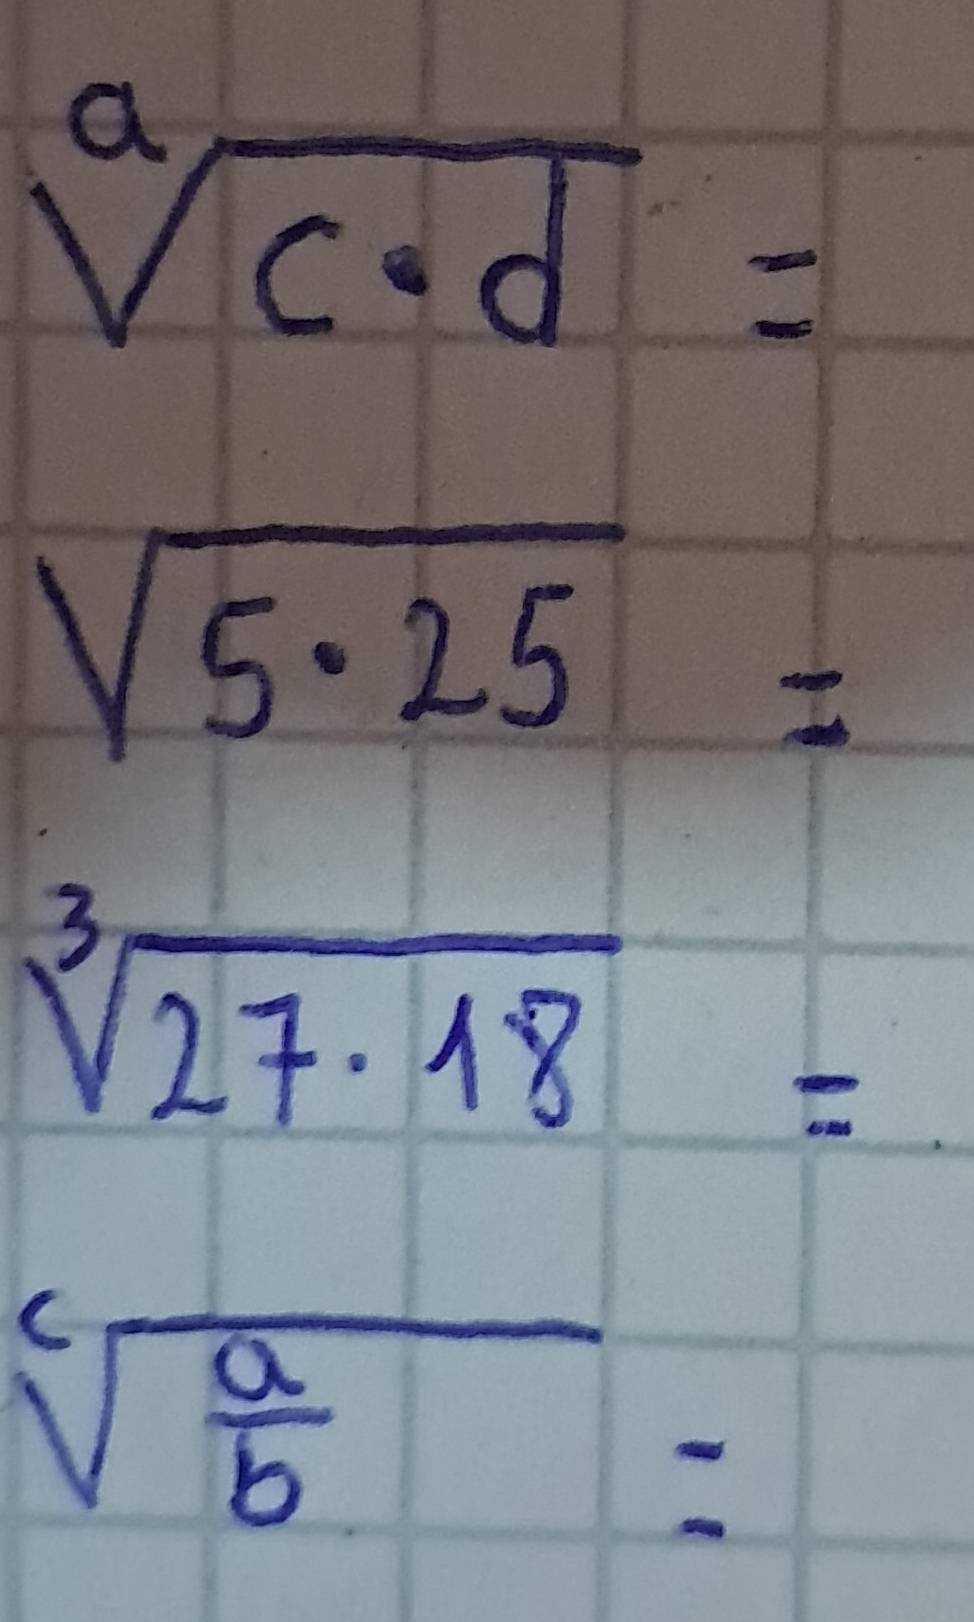 ᵃ√(c·d) =
√(5·25) =
³√(27·18) =
ᶜ√(a/b) =